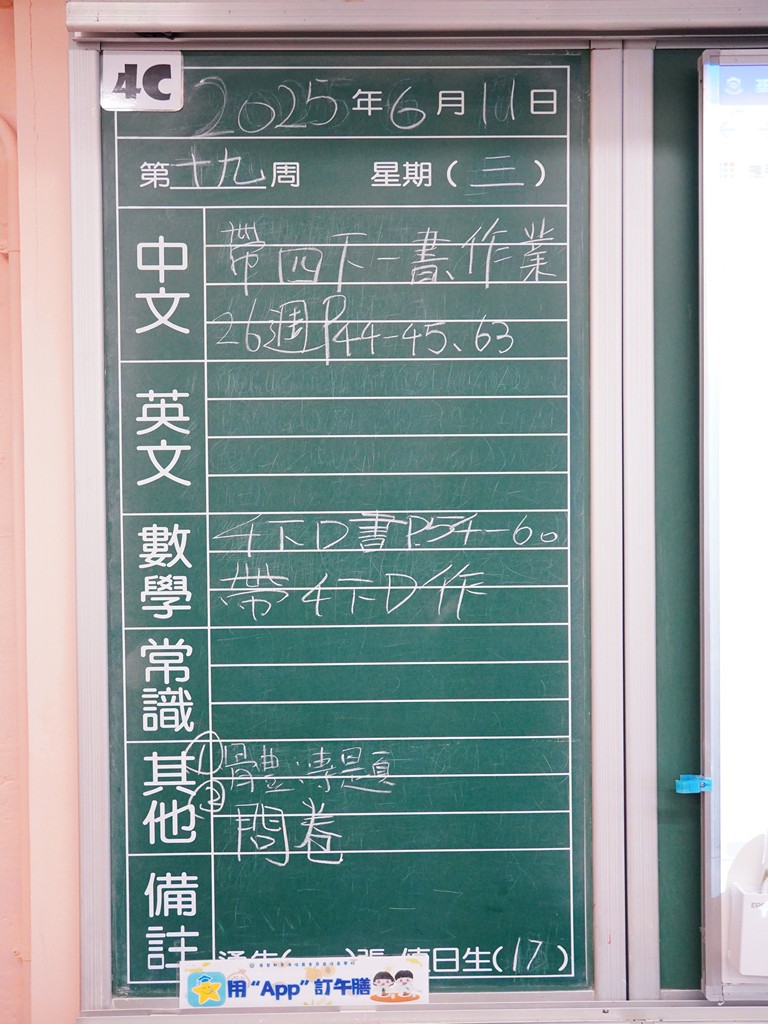 4C
2025年6月11日
第十九周 星期(三)
中文
帶四下一書、作業
26週P44-45、63
英文
數學
4下D書P.54-60
帶4下D作
常識
其他
①體:專題
②問卷
備註
通告( )張 值日生(17)
用“App”訂午膳